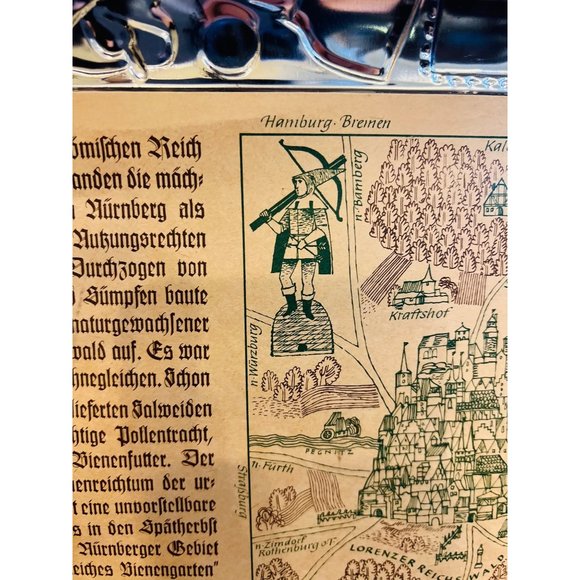 ömischen Reich
anden die mäch-
Nürnberg als
Nutzungsrechten
Durchzogen von
Sümpfen baute
naturgewachsener
wald auf. Es war
hnegleichen. Schon
lieferten Salweiden
htige Pollentracht,
Bienenfutter. Der
nenreichtum der ur-
t eine unvorstellbare
s in den Spätherbst
Nürnberger Gebiet
reiches Bienengarten"
Hamburg · Bremen
n. Bamberg
Kal
Kraftshof
n. Würzburg
PEGNITZ
n. Fürth
Straßburg
n. Zirndorf
Rothenburg o.T.
LORENZER REICHSWA